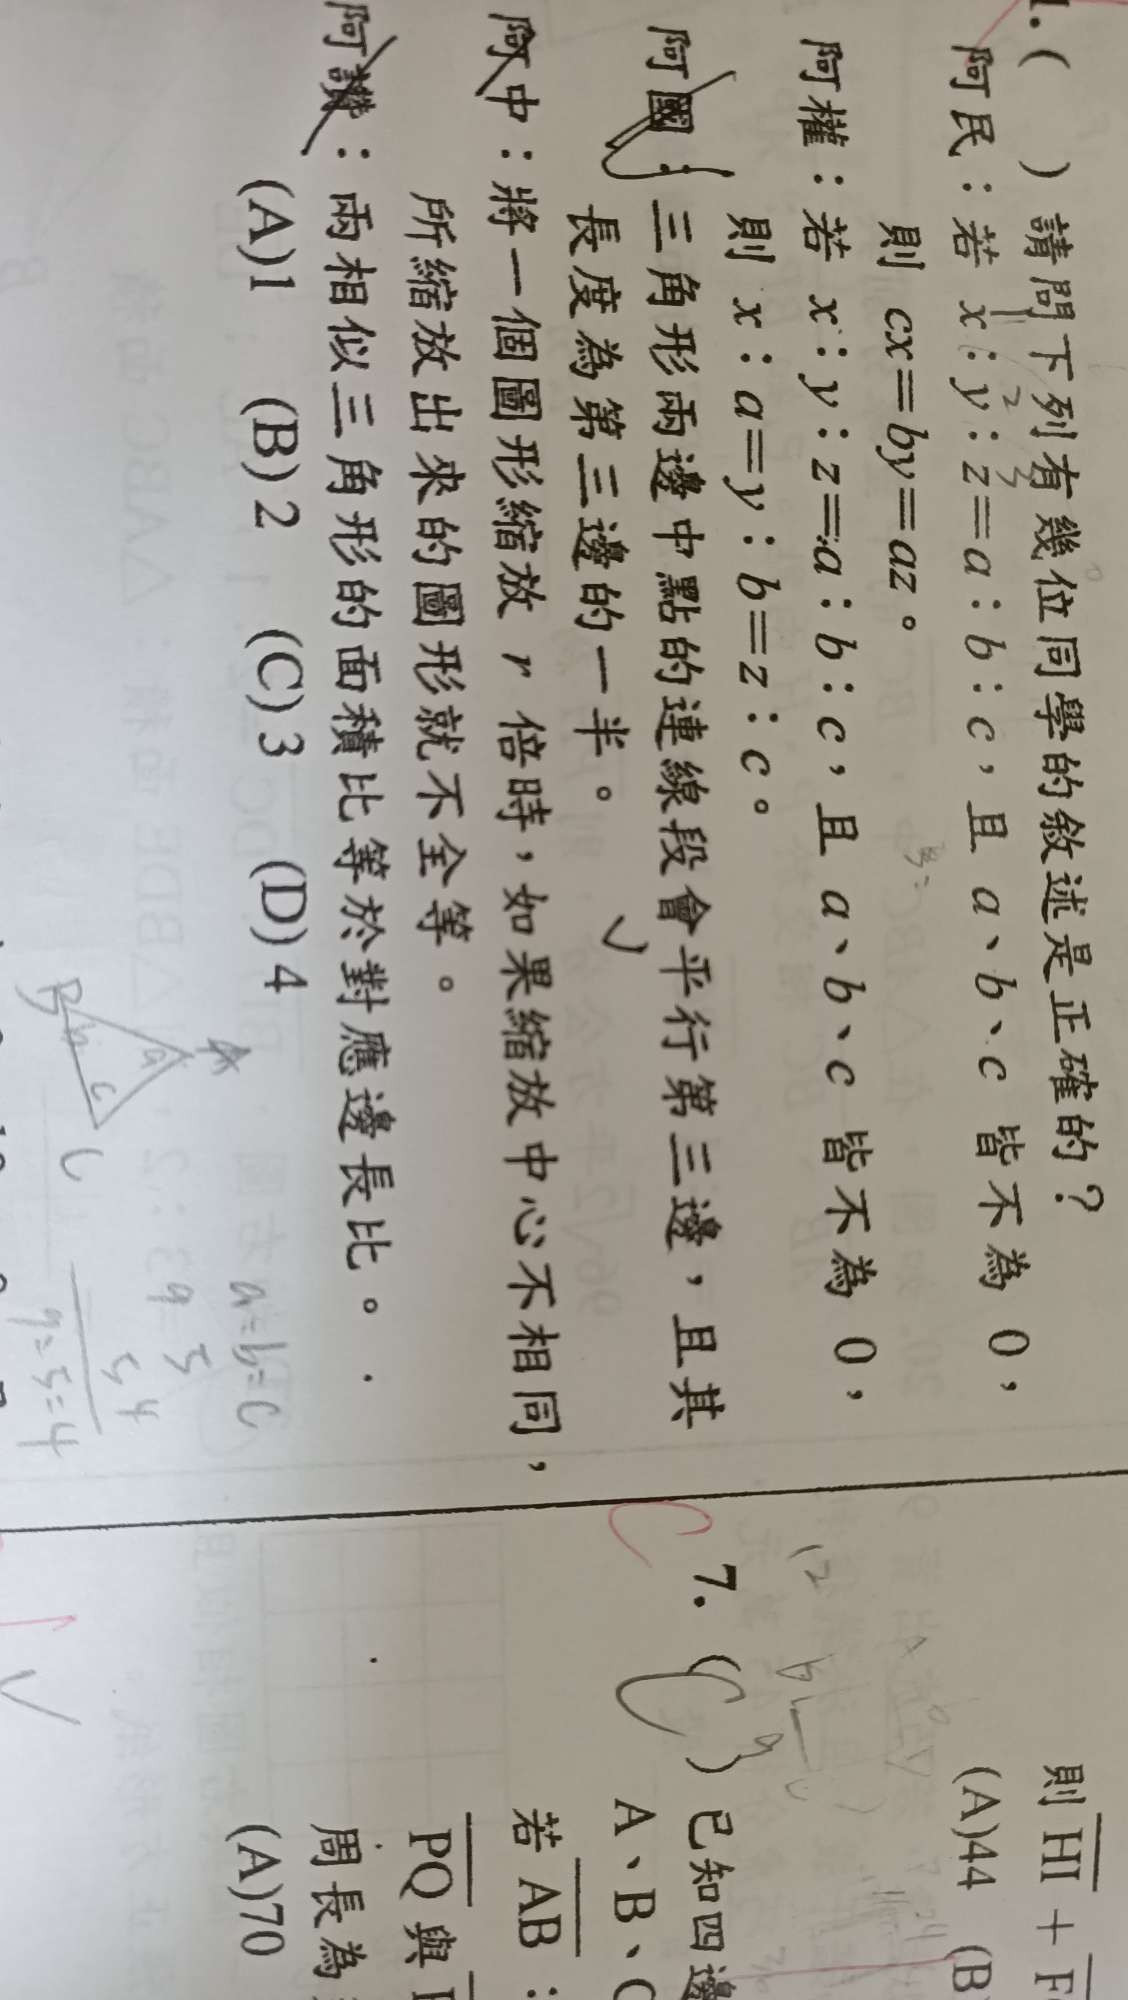 1. (　) 請問下列有幾位同學的敘述是正確的？
阿民：若 x：y：z＝a：b：c，且 a、b、c 皆不為 0，
則 cx＝by＝az。
阿權：若 x：y：z＝a：b：c，且 a、b、c 皆不為 0，
則 x：a＝y：b＝z：c。
阿國：三角形兩邊中點的連線段會平行第三邊，且其
長度為第三邊的一半。
阿中：將一個圖形縮放 r 倍時，如果縮放中心不相同，
所縮放出來的圖形就不全等。
阿讚：兩相似三角形的面積比等於對應邊長比。
(A)1 (B) 2 (C) 3 (D) 4
A
B
C
a
b
c
a=b=C
則 HI +
(A)44 (B
7. ( C ) 已知四邊
A、B、C
若 AB：
PQ 與
周長為
(A)70